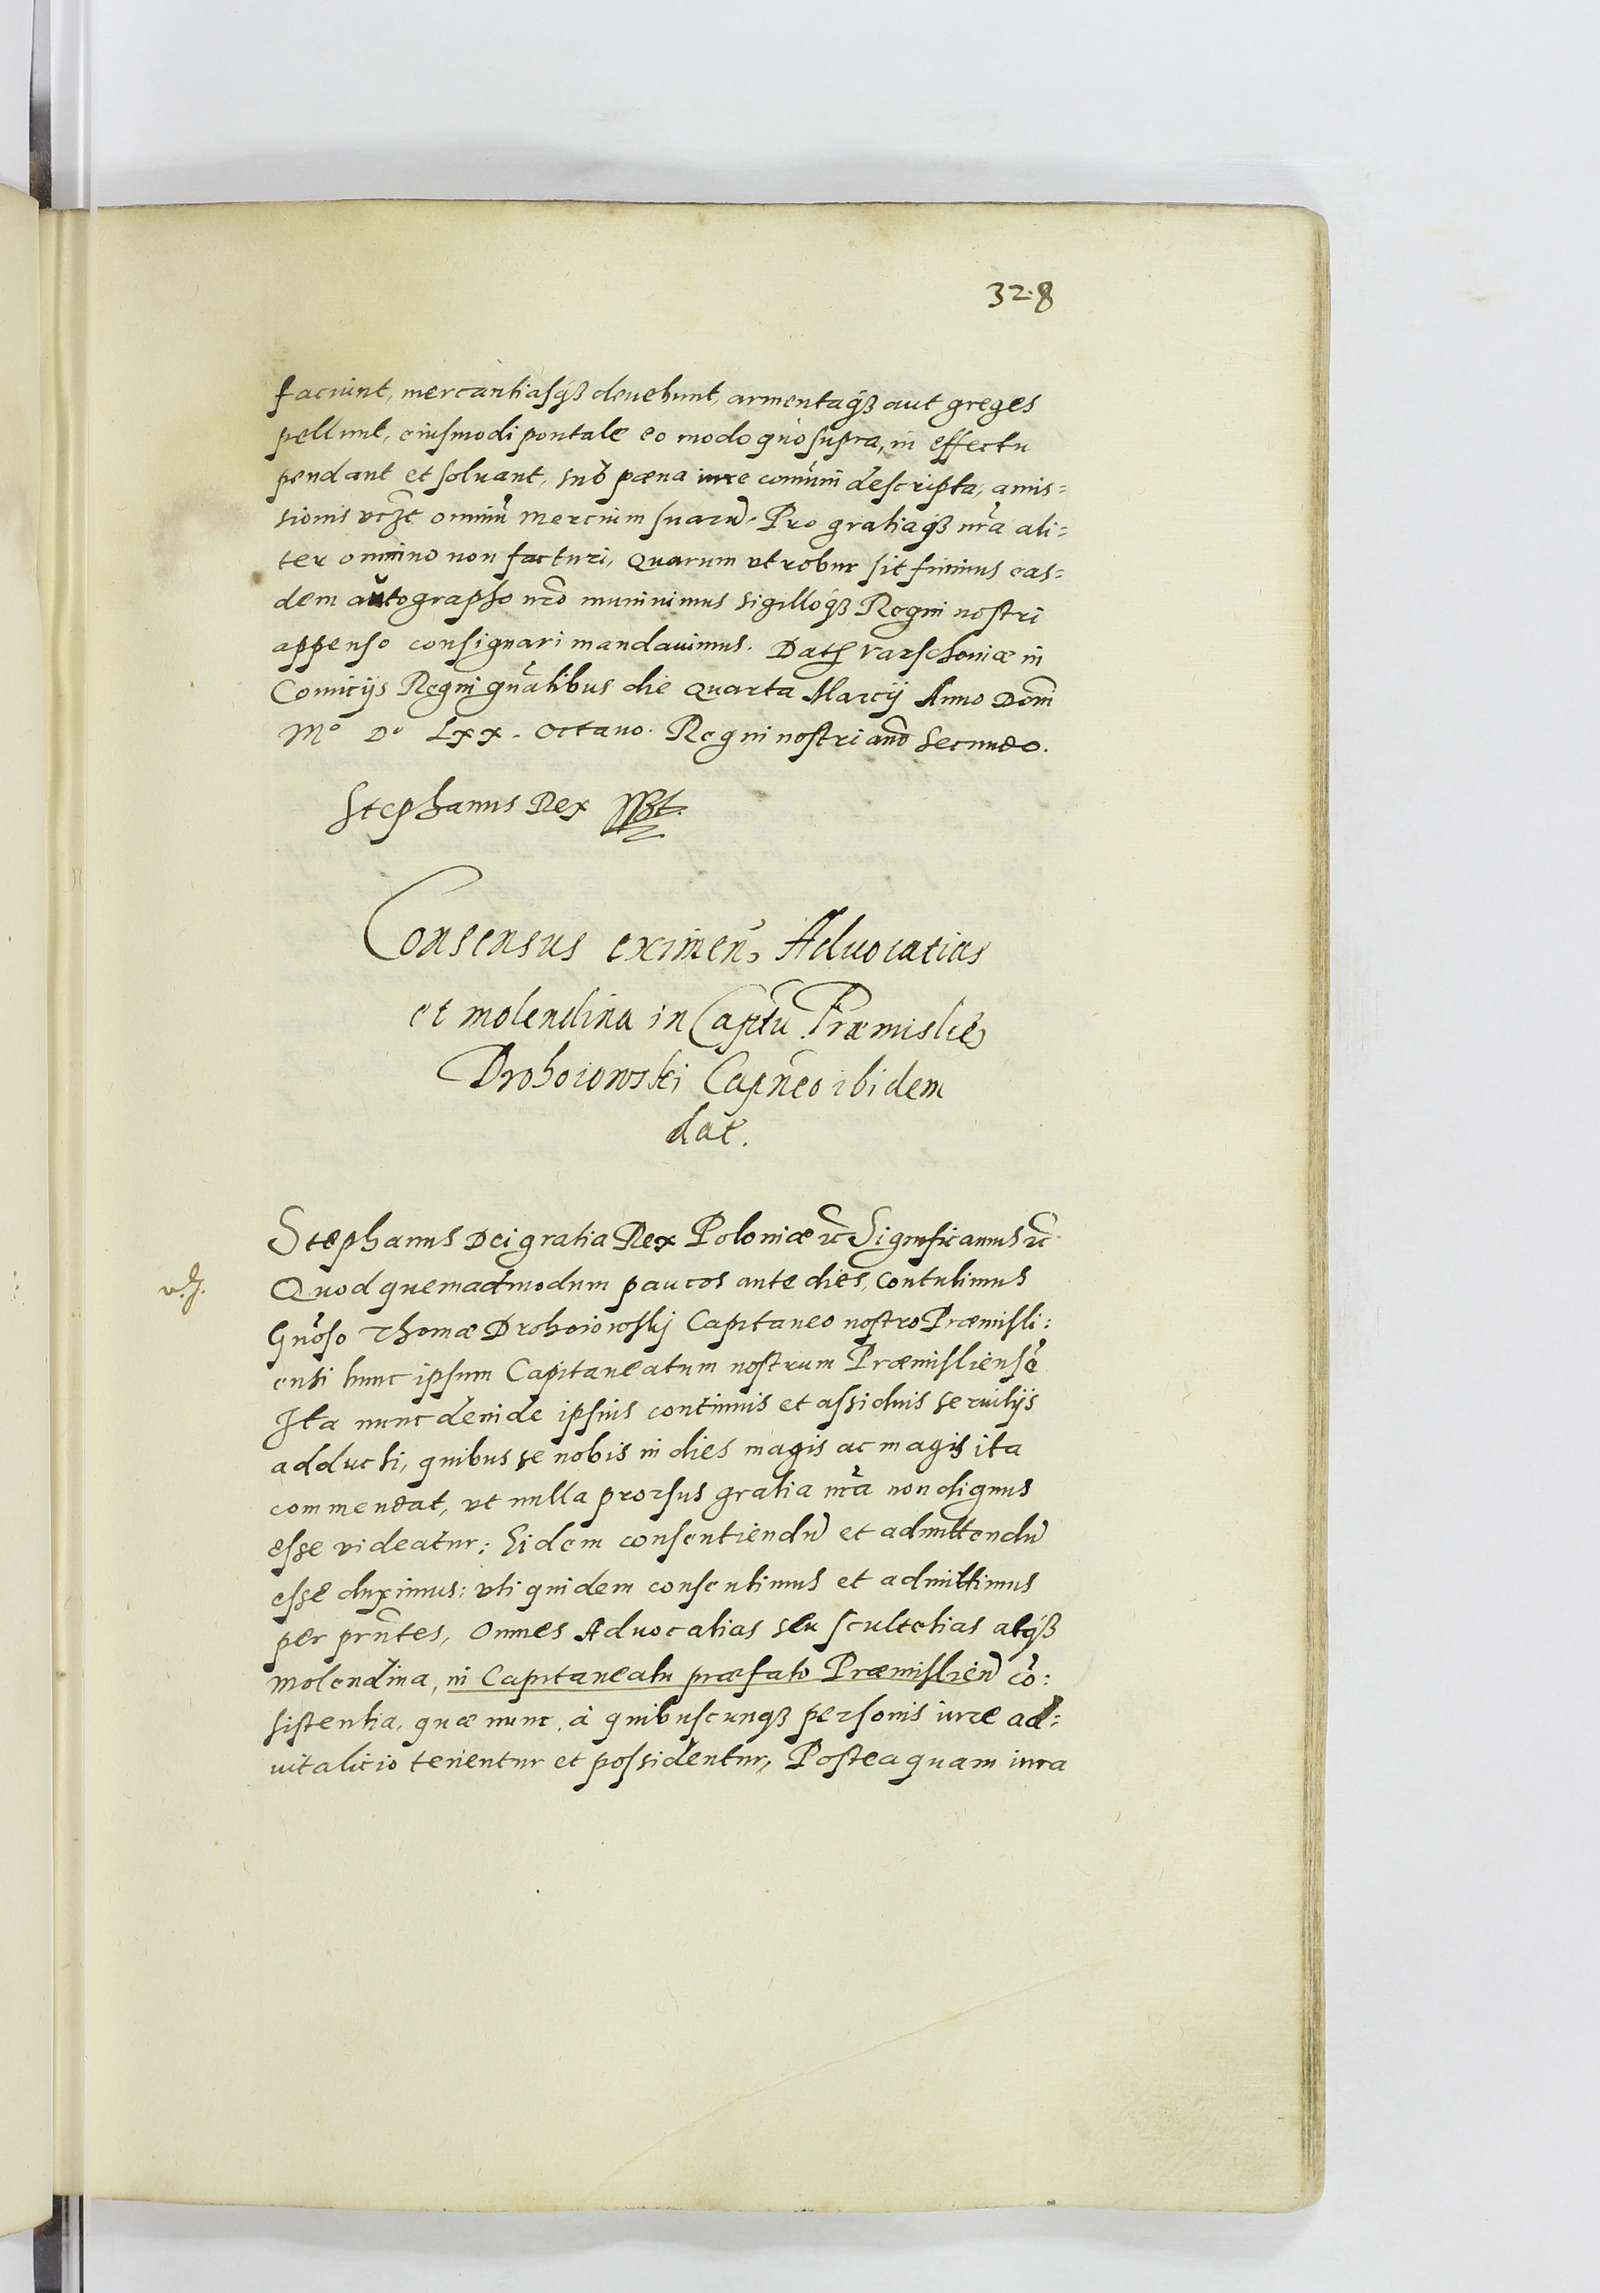 32.8
faciunt, mercantiasq3 deuehunt, armentaq3 aut greges
pellunt, eiusmodi pontale eo modo quo supra, in effectu
pendant et soluant, sub pæna iure comūni descripta, amis=
sionis vczt omniū mercium suarū. Pro gratiaq3 nrā ali=
ter omnino non facturi, Quarum vt robur sit firmius eas=
dem autographo nrō muniuimus sigilloq3 Regni nostri
appenso consignari mandauimus. Dat Varschouiæ in
Comicijs Regni gnālibus die Quarta Marcij Anno Domī
Mº Dº Lxx. Octauo. Regni nostri annō Secundo.
Stephanus Rex
Consensus eximen̄ Aduocatias
et molendina in Captū Præmislien̄
Drohoiowski Capnēo ibidem
dat.
Stephanus Dei gratia Rex Poloniæ rc̄ Significamus rc̄
Quod quemadmodum paucos ante dies, Contulimus
Gnōso Thomæ Drohoiowskij Capitaneo nostro Præmisli:
ensi hunc ipsum Capitaneatum nostrum Præmisliensē
Ita nunc deinde ipsius continuis et assiduis seruitijs
adducti, quibus se nobis in dies magis ac magis ita
commendat, vt nulla prorsus gratia nrā non dignus
esse videatur: Eidem consentiendū et admittendū
esse duximus: vti quidem consentimus et admittimus
per prn̄tes, Omnes Aduocatias seu scultetias atq3
molendina, in Capitaneatu præfato Præmislien̄ cō:
sistentia, quæ nunc à quibuscunq3 personis iure ad=
vitalicio tenentur et possidentur, Posteaquam iura